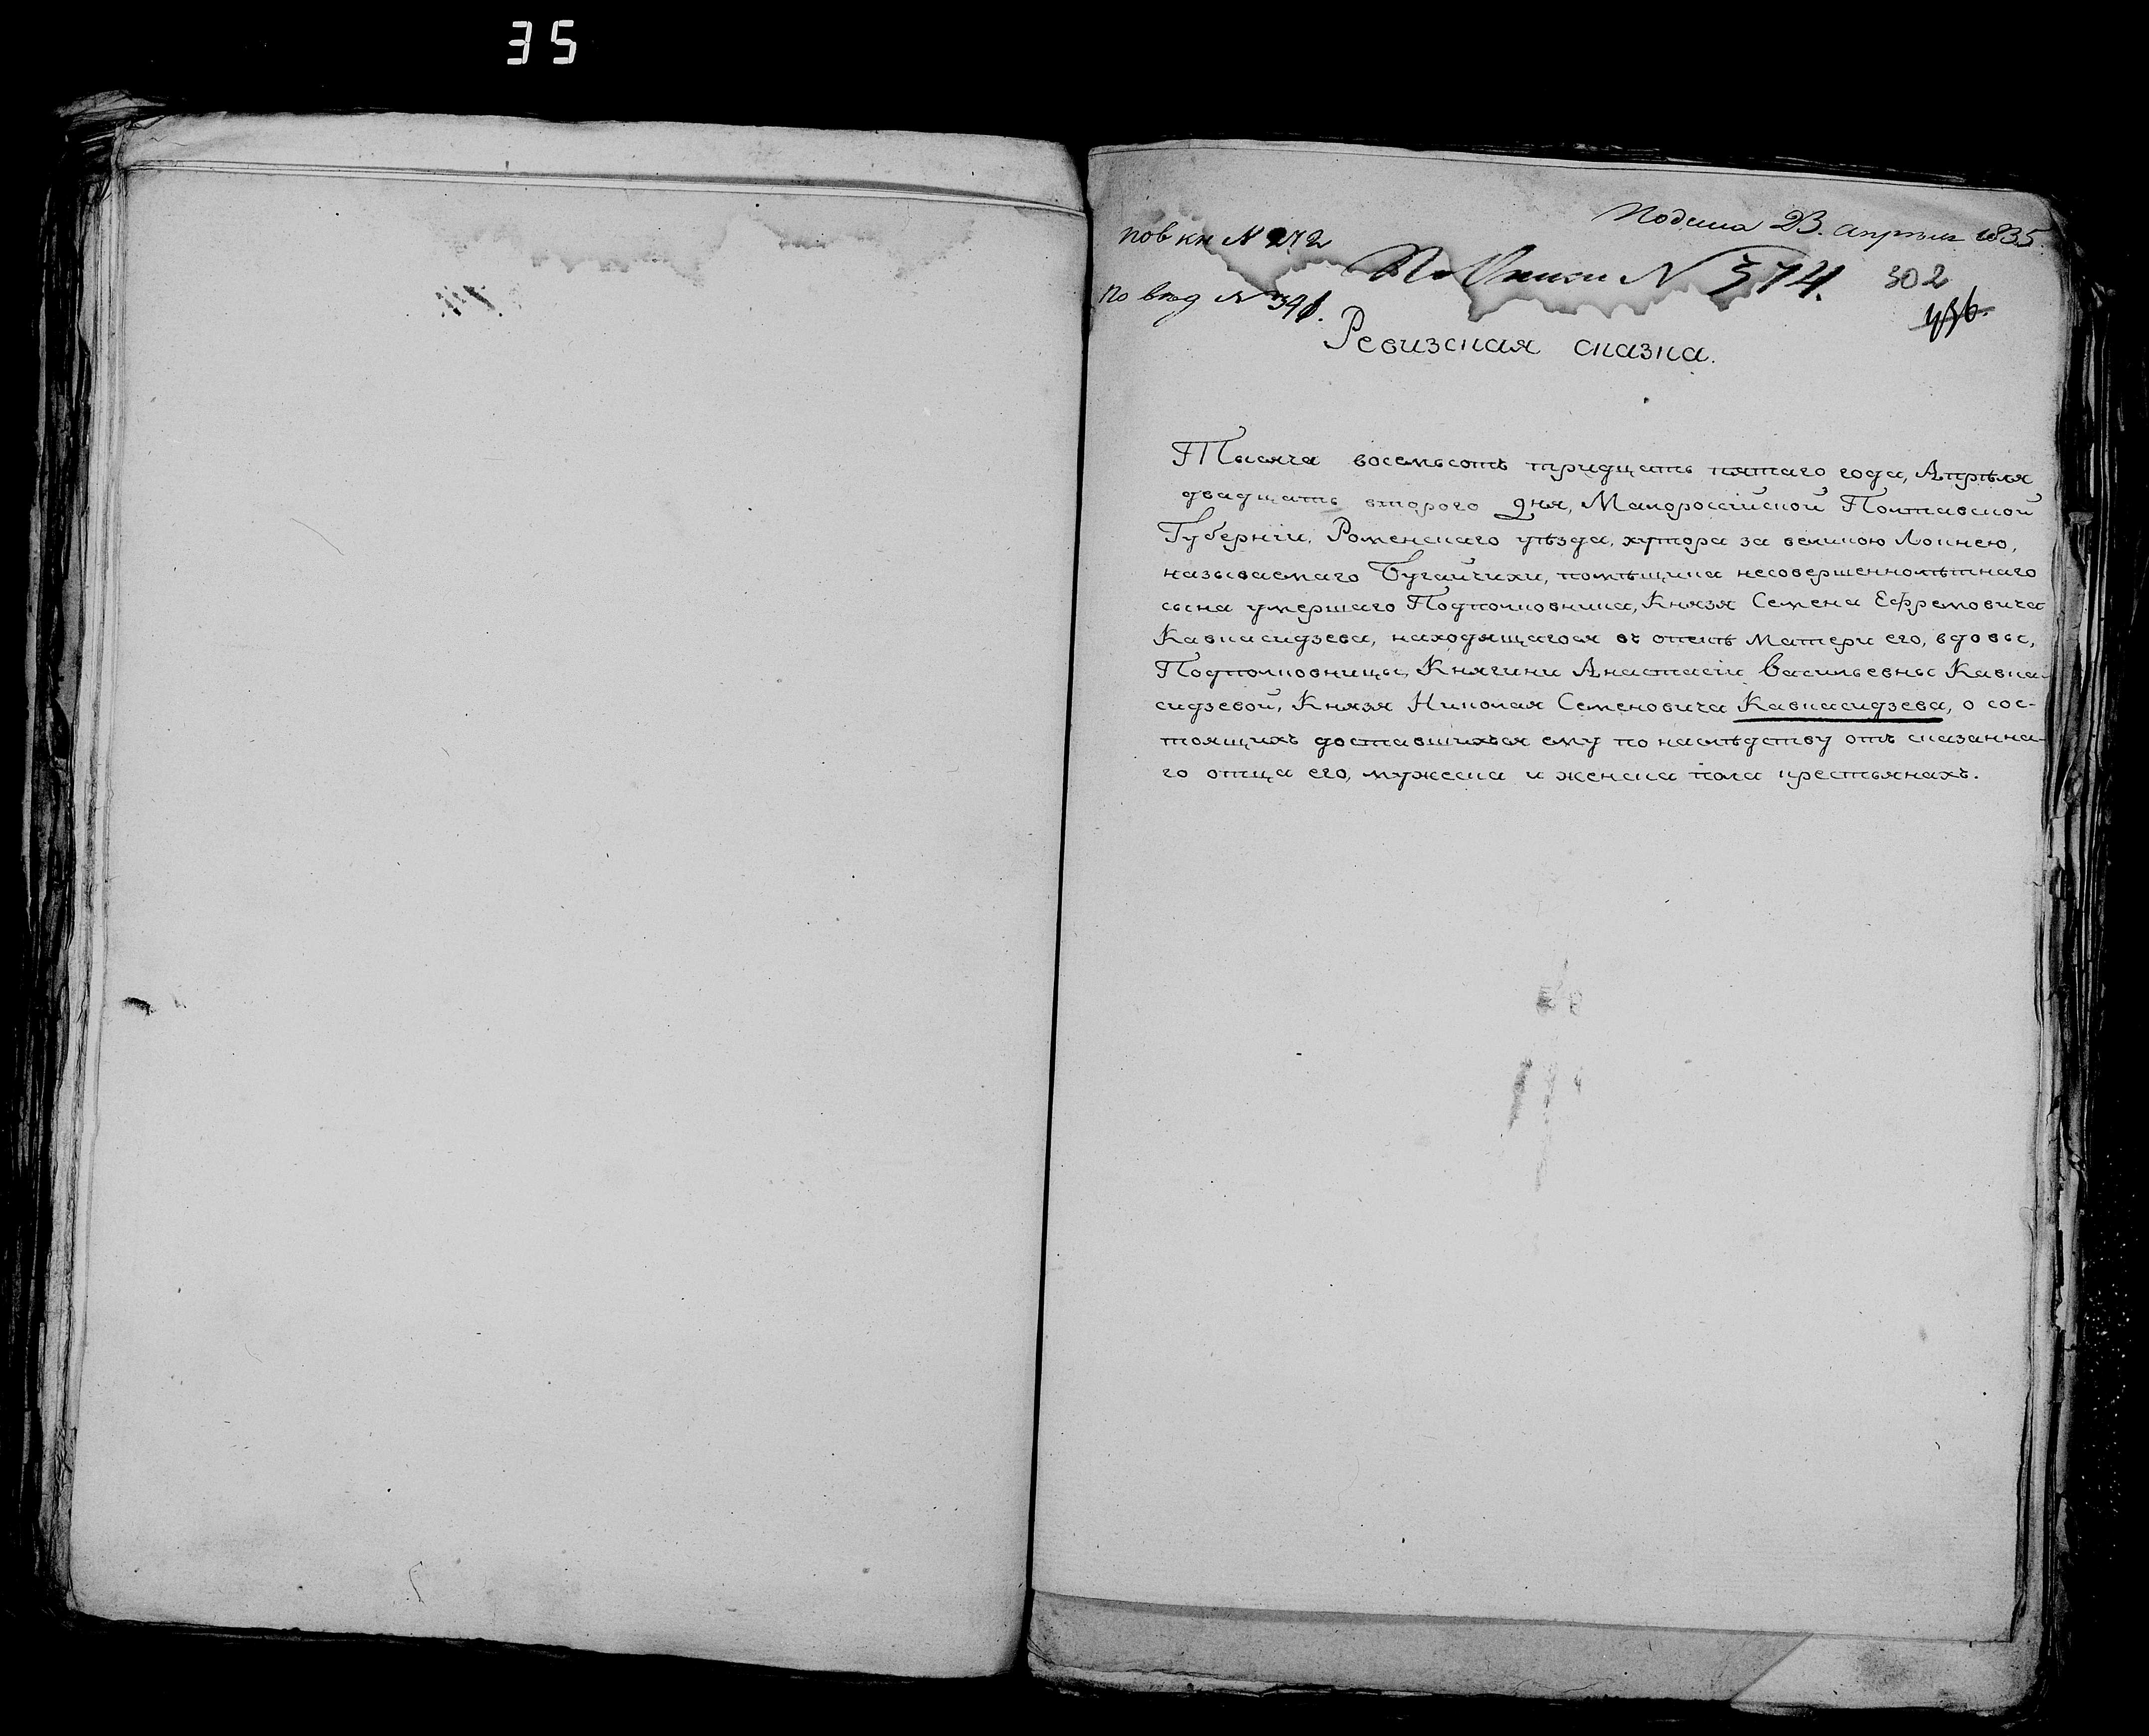 35
Подана 23. апреля 1835.
по в кн N 272
По Книги N 374. 302
по вход N 391.
Ревизская сказка.
Тысяча восемьсотъ тридцать пятаго года, Апрѣля
двадцать второго дня, Малороссійской Полтавской
Губерніи, Роменскаго уѣзда, хутора за великою Лохнею,
называемаго Бугайчихи, помѣщика несовершеннолѣтнаго
сына умершаго Подполковника, Князя Семена Ефремовича
Кавкасидзева, находящагося въ опекѣ матери его, вдовы,
Подполковницы, Княгини Анастасіи Васильевны Кавка-
сидзевой, Князя Николая Семеновича Кавкасидзева, о сос-
тоящихъ доставшихъся ему по наслѣдству отъ сказанна-
го отца его, мужеска и женска пола крестьянахъ.